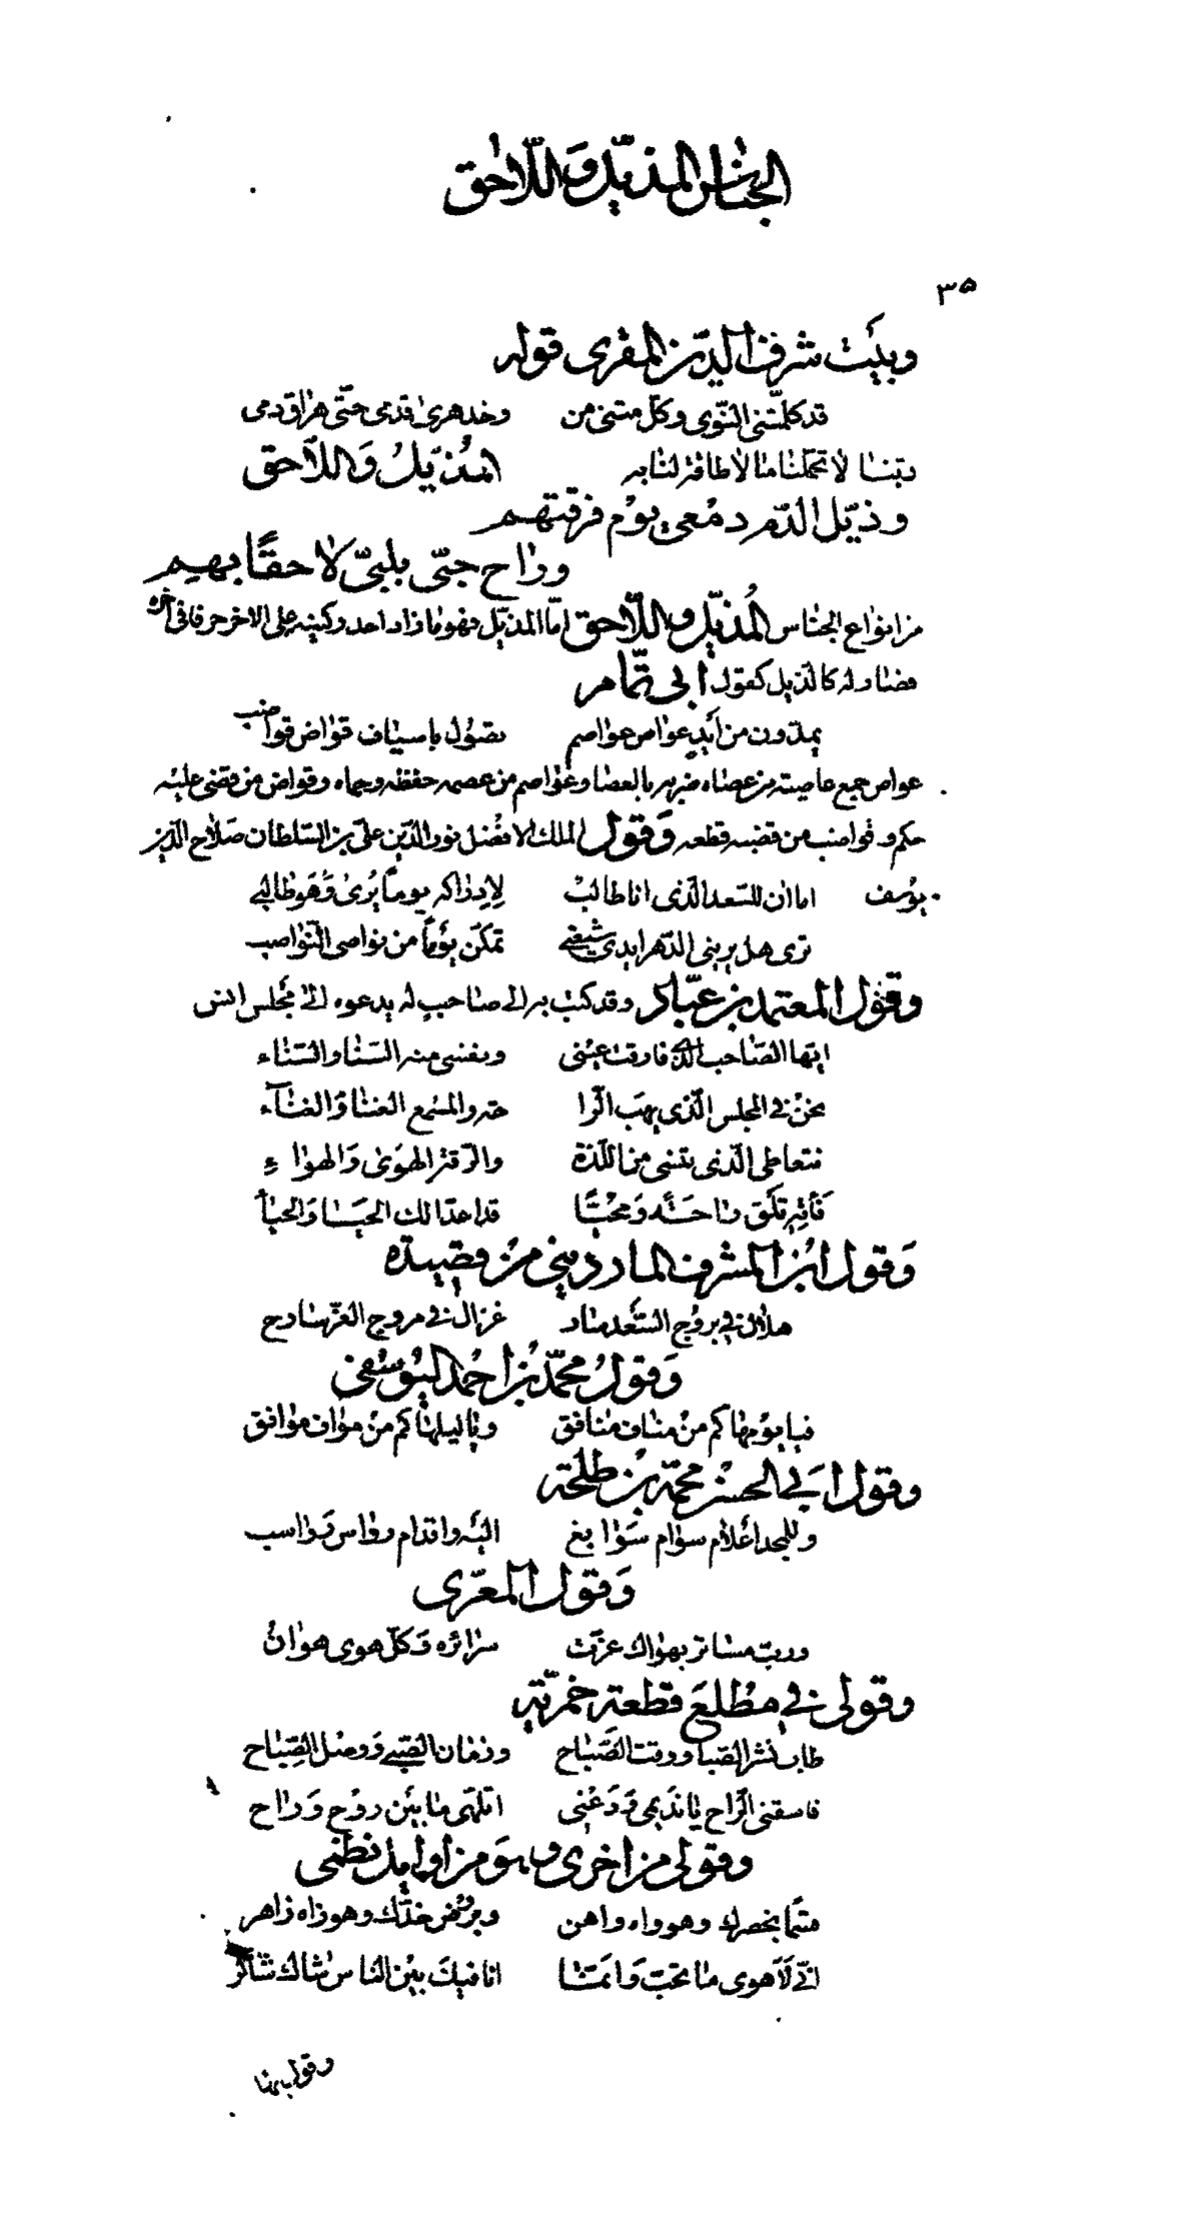 الجناس المذيّل واللّاحق
٣٥
وبيت شرف الدّين المقرى قوله
قد كلّمتنى النّوى وكلّ متنى من وخد هرى قدمى حتّى هراق دمى
ربّنا لا تحمّلنا ما لا طاقة لنا به المذيّل واللّاحق
وذيّل الدّم دمعى يوم فرقتهم
وراح حبّى بلبّى لاحقًا بهم
من انواع الجناس المُذيّل واللّاحق امّا المذيّل فهو ما زاد احد ركنيه على الاخر حرفا فى آخره
فصار له كالذيل كقول ابى تمّام
يمدّون من أيدٍ عواص عواصم تصول باسياف قواض قواضب
عواص جمع عاصية من عصاه ضربه بالعصا وعواصم من عصمه حفظه وحماه وقواض من قضى عليه
حكم وقواضب من قضبه قطعه وَقول الملك الافضل نور الدّين علىّ بن السّلطان صلاح الدّين
يوسف اما ان للسّعد الّذى انا طالبٌ لإدراكه يومًا يُرى وَهو طالبى
ترى هل يرينى الدّهر ايدى شيعتى تمكّن يومًا من نواصى النّواصب
وقول المعتمد بن عبّاد وقد كتب به الى صاحبٍ له يدعوه الى مجلس انس
ايّها الصّاحب الّذى فارقت عينى ونفسى منه السّنا والسّناء
نحن فى المجلس الّذى يهب الرّا حة والمسمع الغنا وَالغنآء
نتعاطى الّذى ينسى من اللّذة والرّقة الهوى وَالهواء
فَأته تلق راحَةً وَمحيّا قد اعدّا لك الحيَا وَالحيآ
وَقول ابن المشرف الماردينى من قصيدة
هلال فى بروج السّعد سار غزال فى مروج العزّ سارح
وَقولُ محمّد بن احمد اليوسفى
فيا يومها كم من منافٍ منافق ويا ليلها كم من موافٍ موافق
وقول ابى الحسن محمّد بن طلحة
وللمجد أعلام سوامٍ سَوابغ اليه واقدام رواسٍ رَواسب
وَقول المعرّى
وربّ مساتر بهواك عزّت سرائره وَكلّ هوى هوانُ
وقولى فى مطلع قطعة خمريّة
طاب نشر الصّبا ووقت الصّباح وزمان الصّبى وَوصل الصّباح
فاسقنى الرّاح يا نديمى وَدَعنى اتلهّى ما بين روْحٍ وَراح
وقولى من اخرى وهو من اوايل نظمى
قسمًا بخصرك وهو واه واهن وبروض خدّك وهو زاه زاهر
انّى لَأهوى ما تحبّ وَانّما انا فيك بين النّاس شاك شاكر
وقول